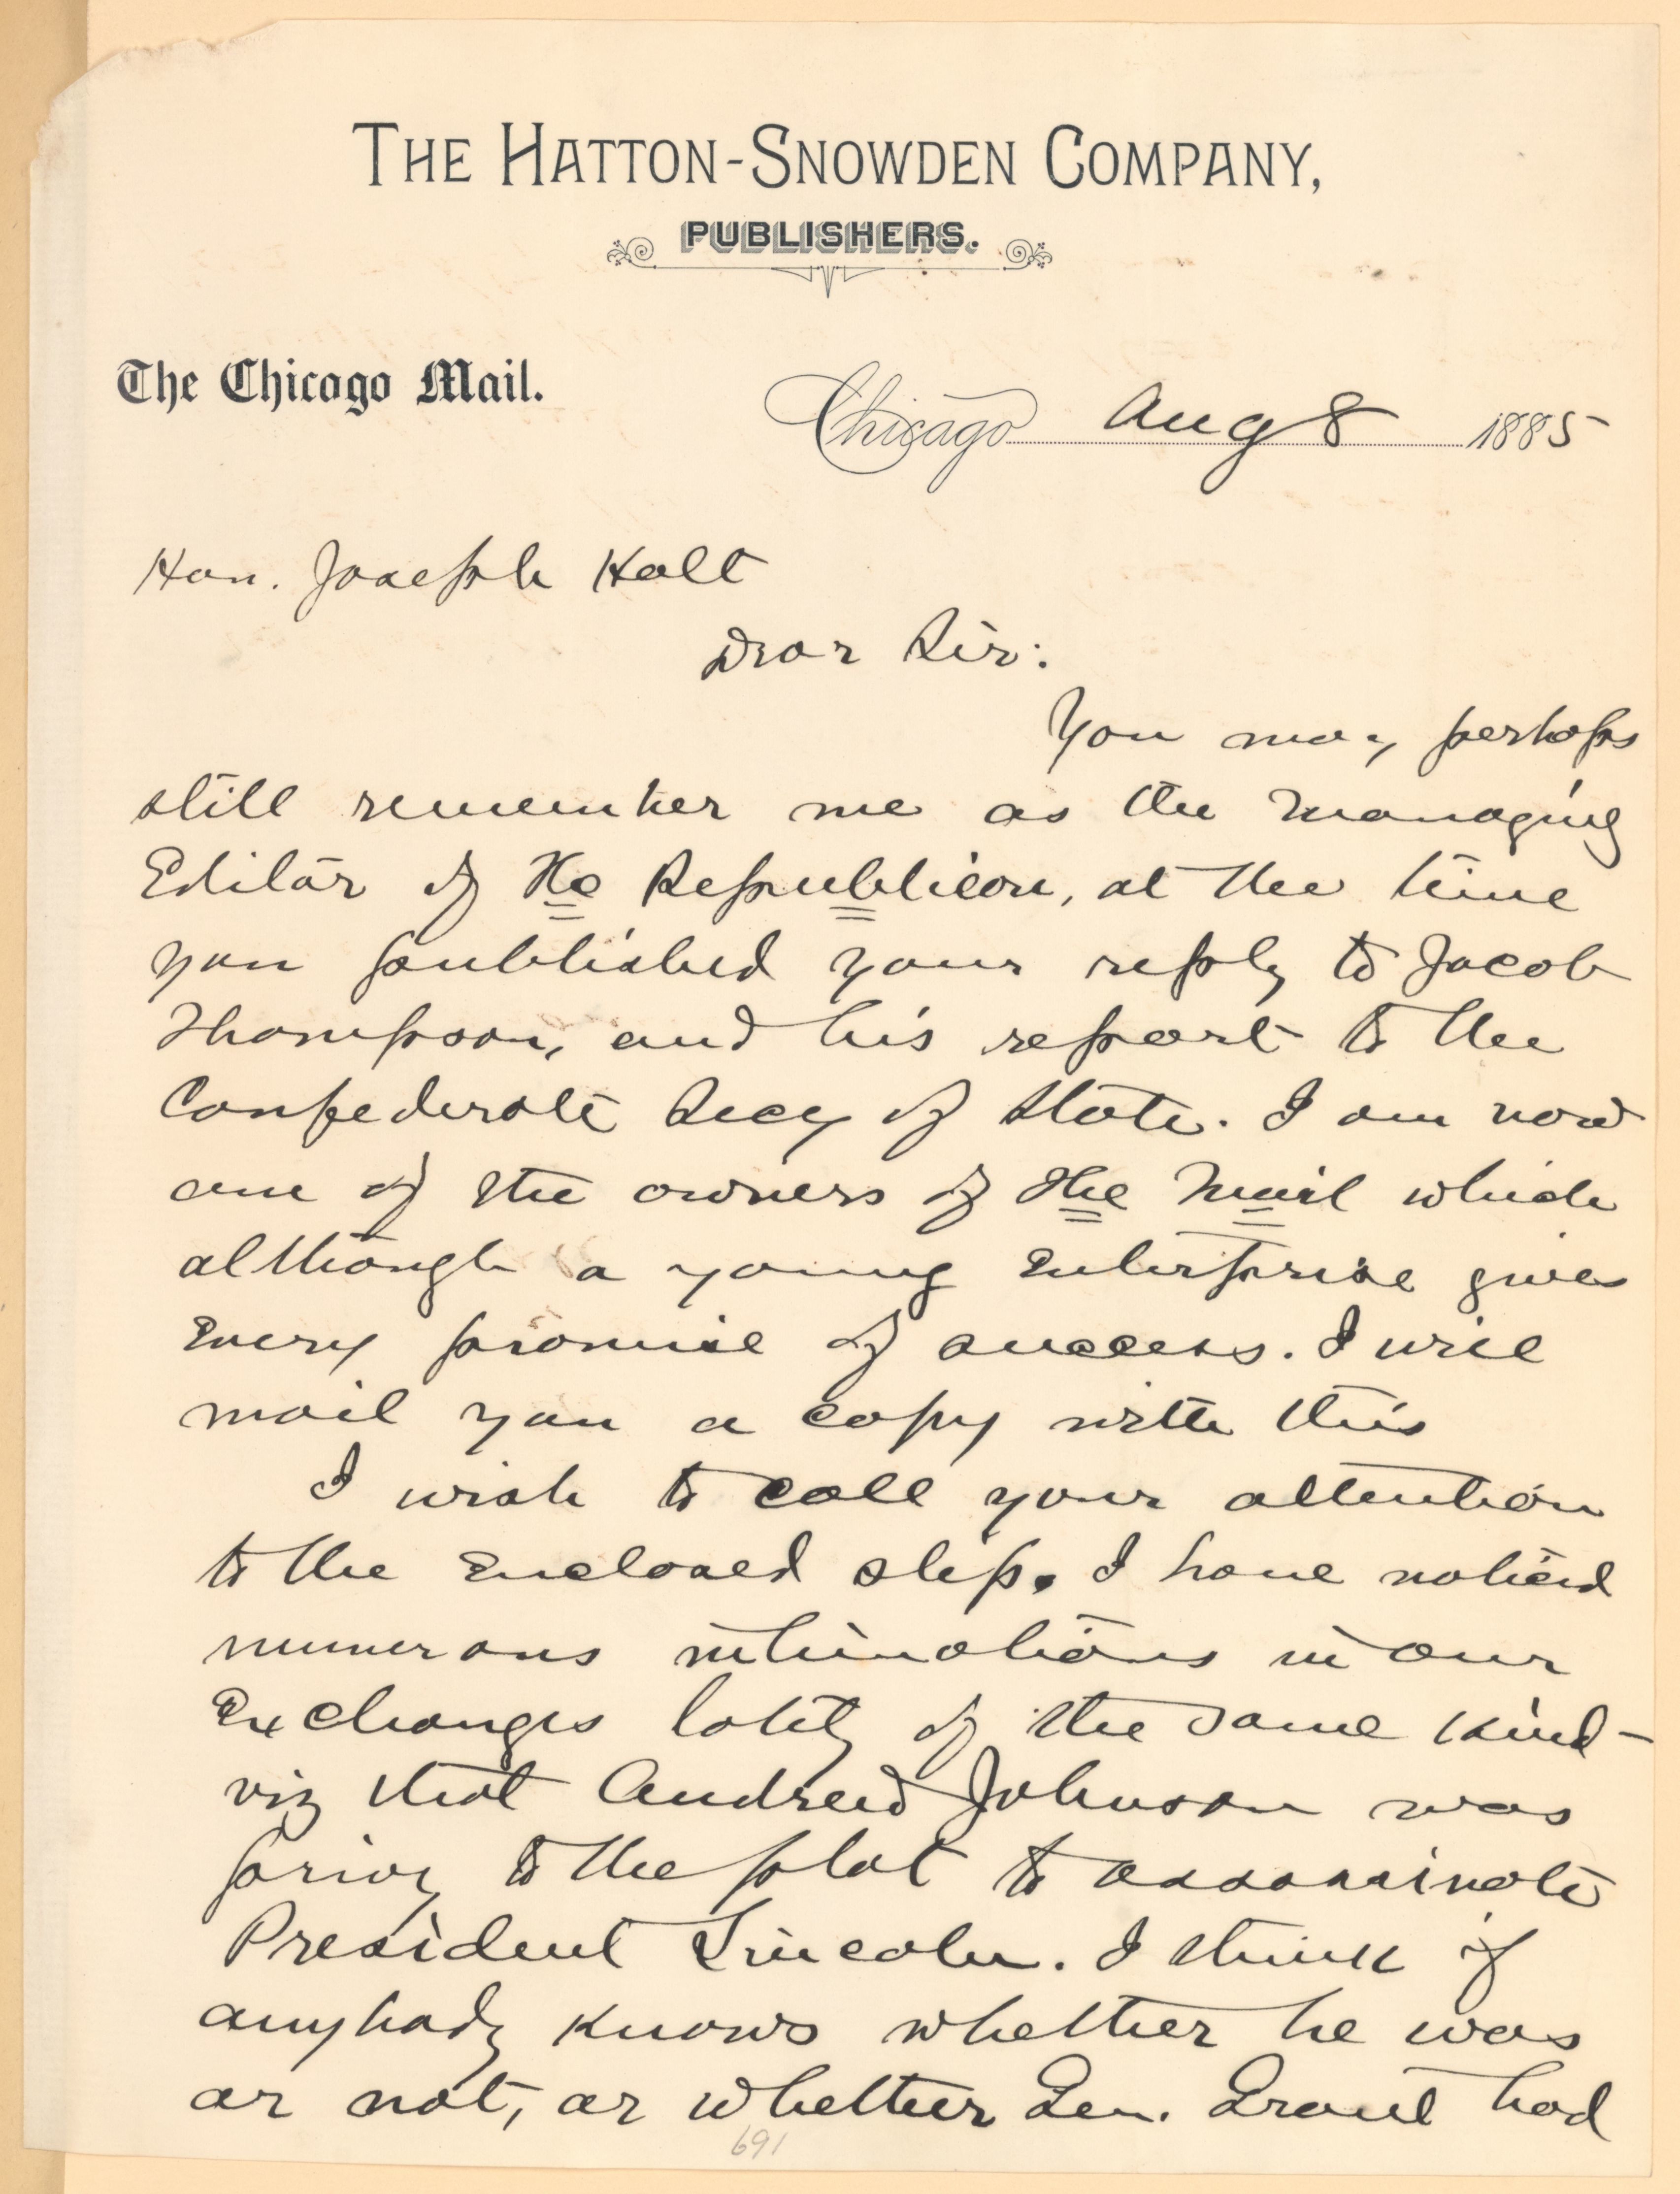 THE HATTON-SNOWDEN COMPANY,
PUBLISHERS.
The Chicago Mail.
Chicago Aug 8 1885
Hon. Joseph Holt
Dear Sir:
You may perhaps
still remember me as the managing
Editor of The Republican, at the time
you published your reply to Jacob
Thompson, and his report to the
Confederate Secy of State. I am now
one of the owners of The Mail which
although a young Enterprise gives
Every promise of success. I will
mail you a copy with this
I wish to call your attention
to the Enclosed slip. I have noticed
numerous intimations in our
Exchanges lately of the same kind-
viz that Andrew Johnson was
privy to the plot to assassinate
President Lincoln. I think if
anybody knows whether he was
or not, or whether Gen. Grant had
691